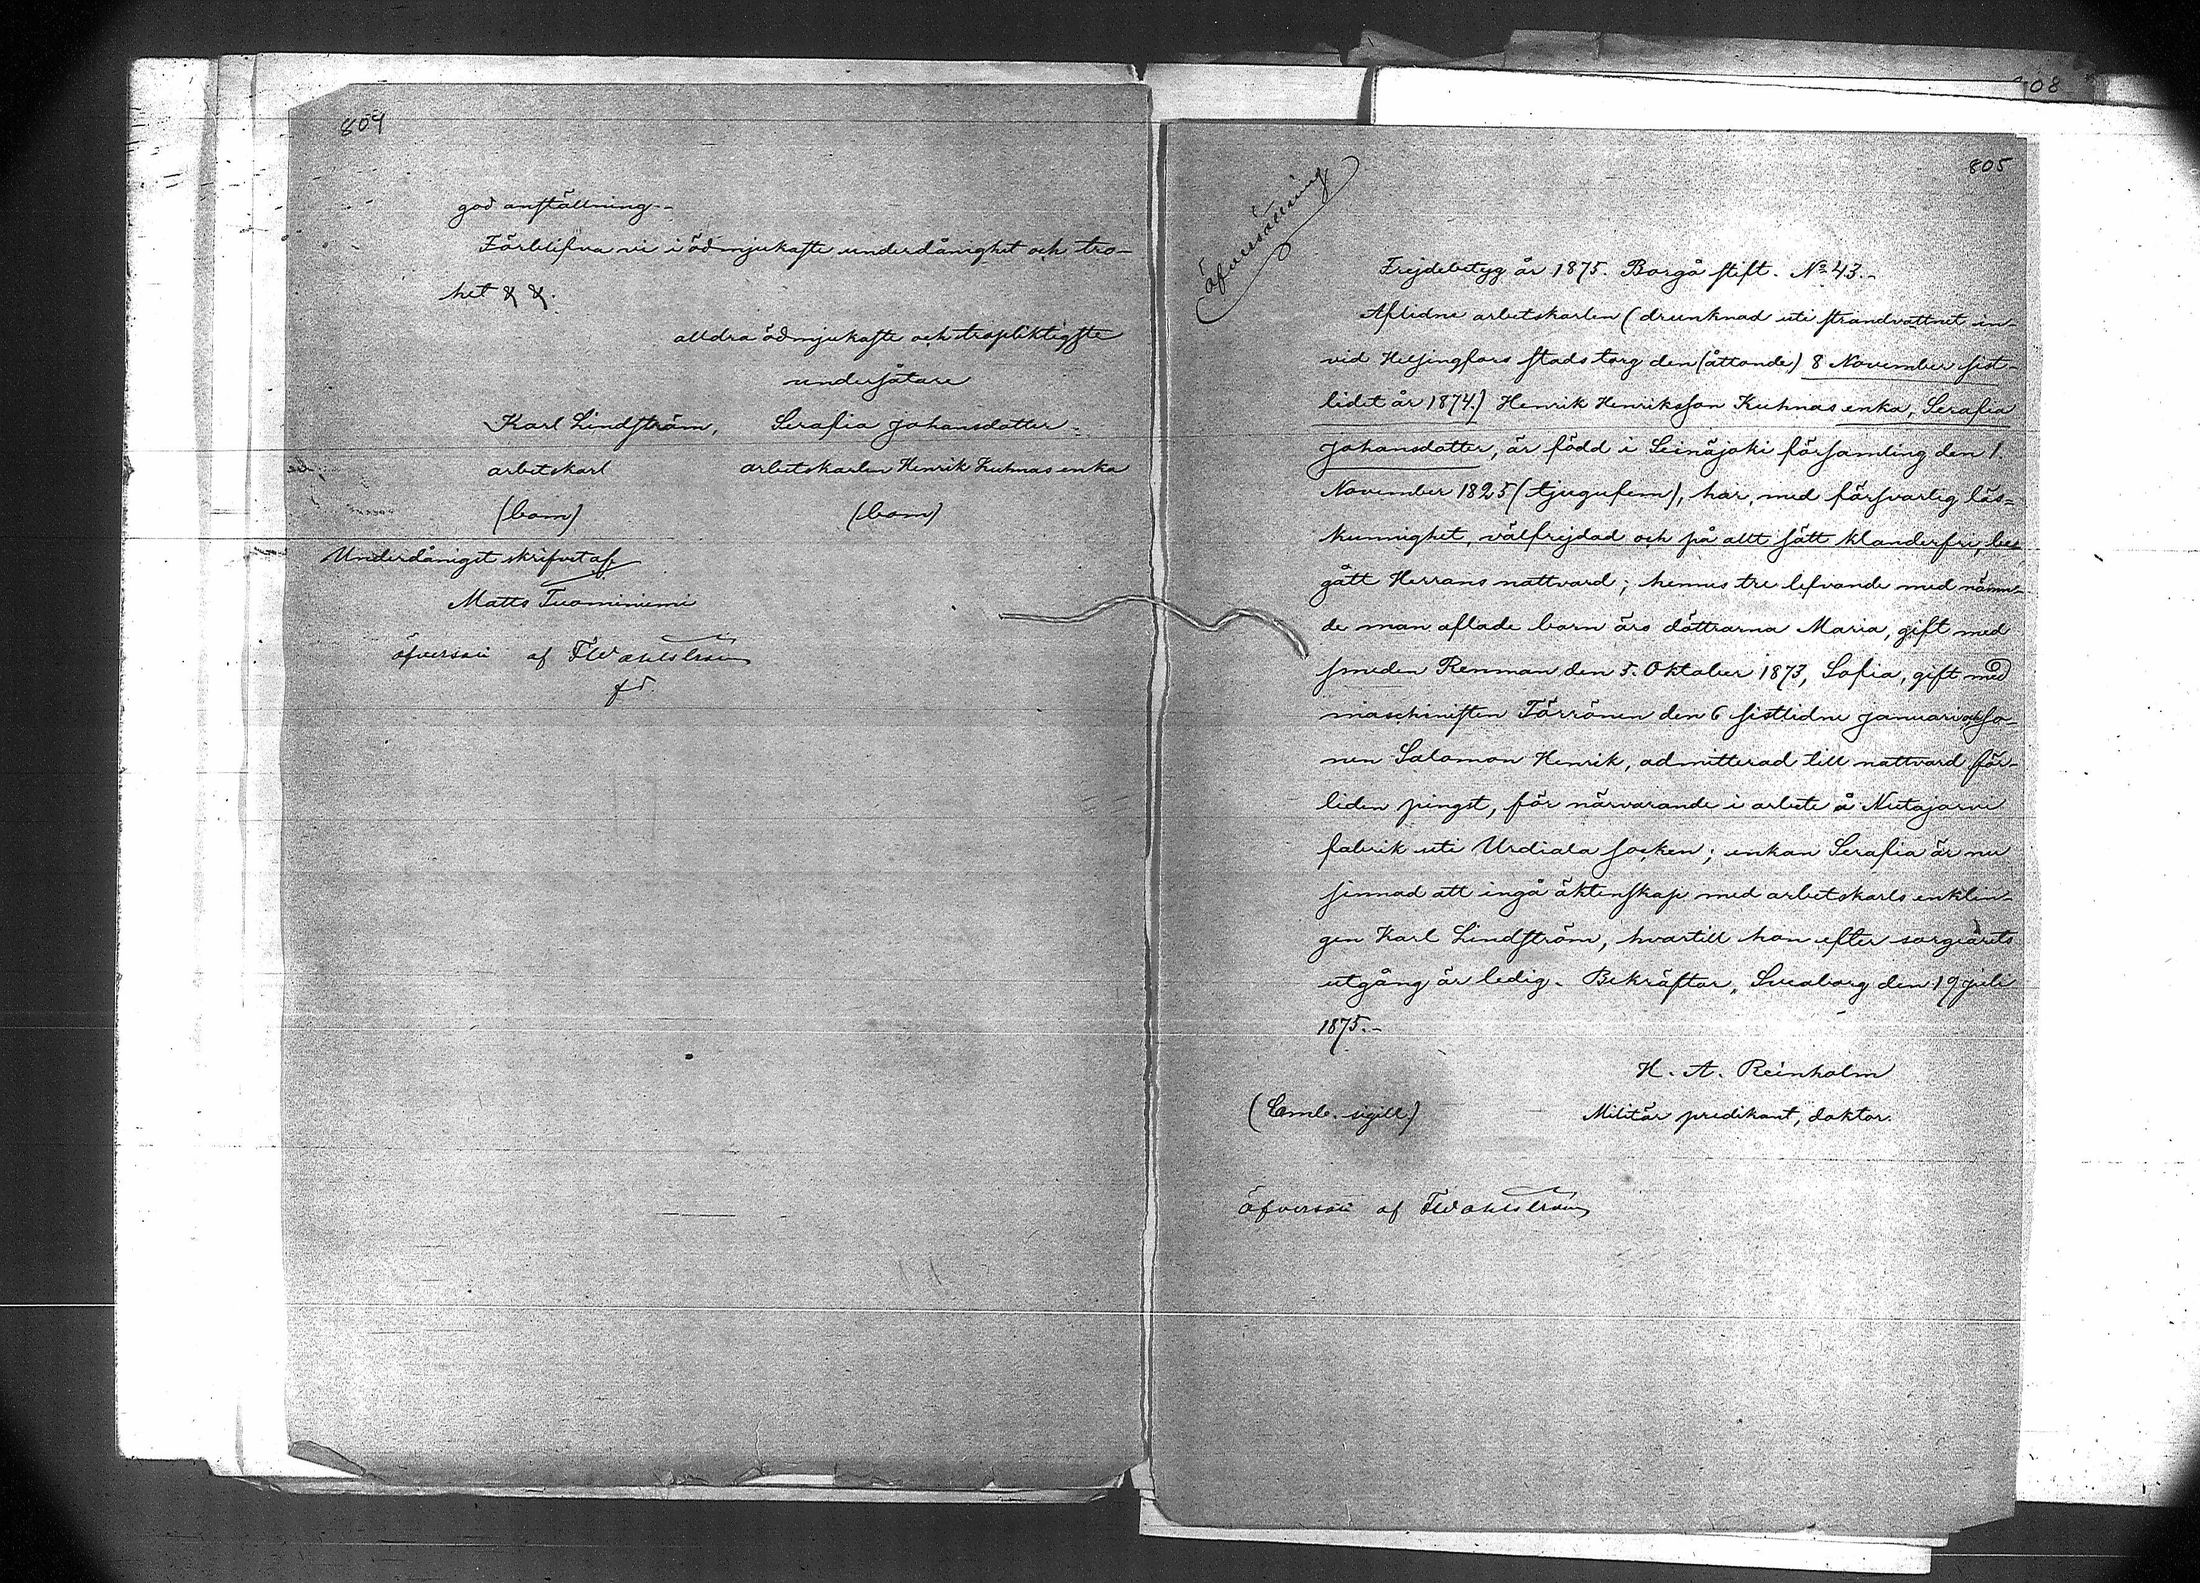 804
god anställning.-
Förblifva vi i ödmjukaste underdånighet och tro-
het & &.
alldra ödmjukaste och tropliktigste
undersåtare
Karl Lindström, Serafia Johansdotter.
arbetskarl arbetskarlen Henrik Kuhnas enka
(bom) (bom)
Underdånigst skrifvet af,
Matts Tuominiemi
öfversatt af F Wahlström
08
805
Öfversättning
Frejdebetyg år 1875. Borgå stift. No 43.-
Aflidne arbetskarlen (drunknad uti strandvattnet in-
vid Helsingfors stads torg den (åttonde) 8 November sist-
lidet år 1874.) Henrik Henriksson Kuhnas enka, Serafia
Johansdotter, är född i Seinäjoki församling den 1.
November 1825 (tjugufem), har, med försvarlig läs-
kunnighet, välfrejdad och på allt sätt klanderfri, be-
gått Herrans nattvard; hennes tre lefvande med nämn-
de man aflade barn äro döttrarna Maria, gift med
smeden Renman den 5. Oktober 1873, Sofia, gift med
maschinisten Törrönen den 6 sistlidne januari och so-
nen Salomon Henrik, admitterad till nattvard för-
liden pingst, för närvarande i arbete å Nutajärvi
fabrik uti Urdiala socken; enkan Serafia är nu
sinnad att ingå äktenskap med arbetskarls enklin-
gen Karl Lindström, hvartill hon efter sorgeårets
utgång är ledig. Bekräftar, Sveaborg den 19 juli
1875.-
H. A. Reinholm
(Emb. sigill.) Militär predikant, doktor.
öfversatt af F Wahlström